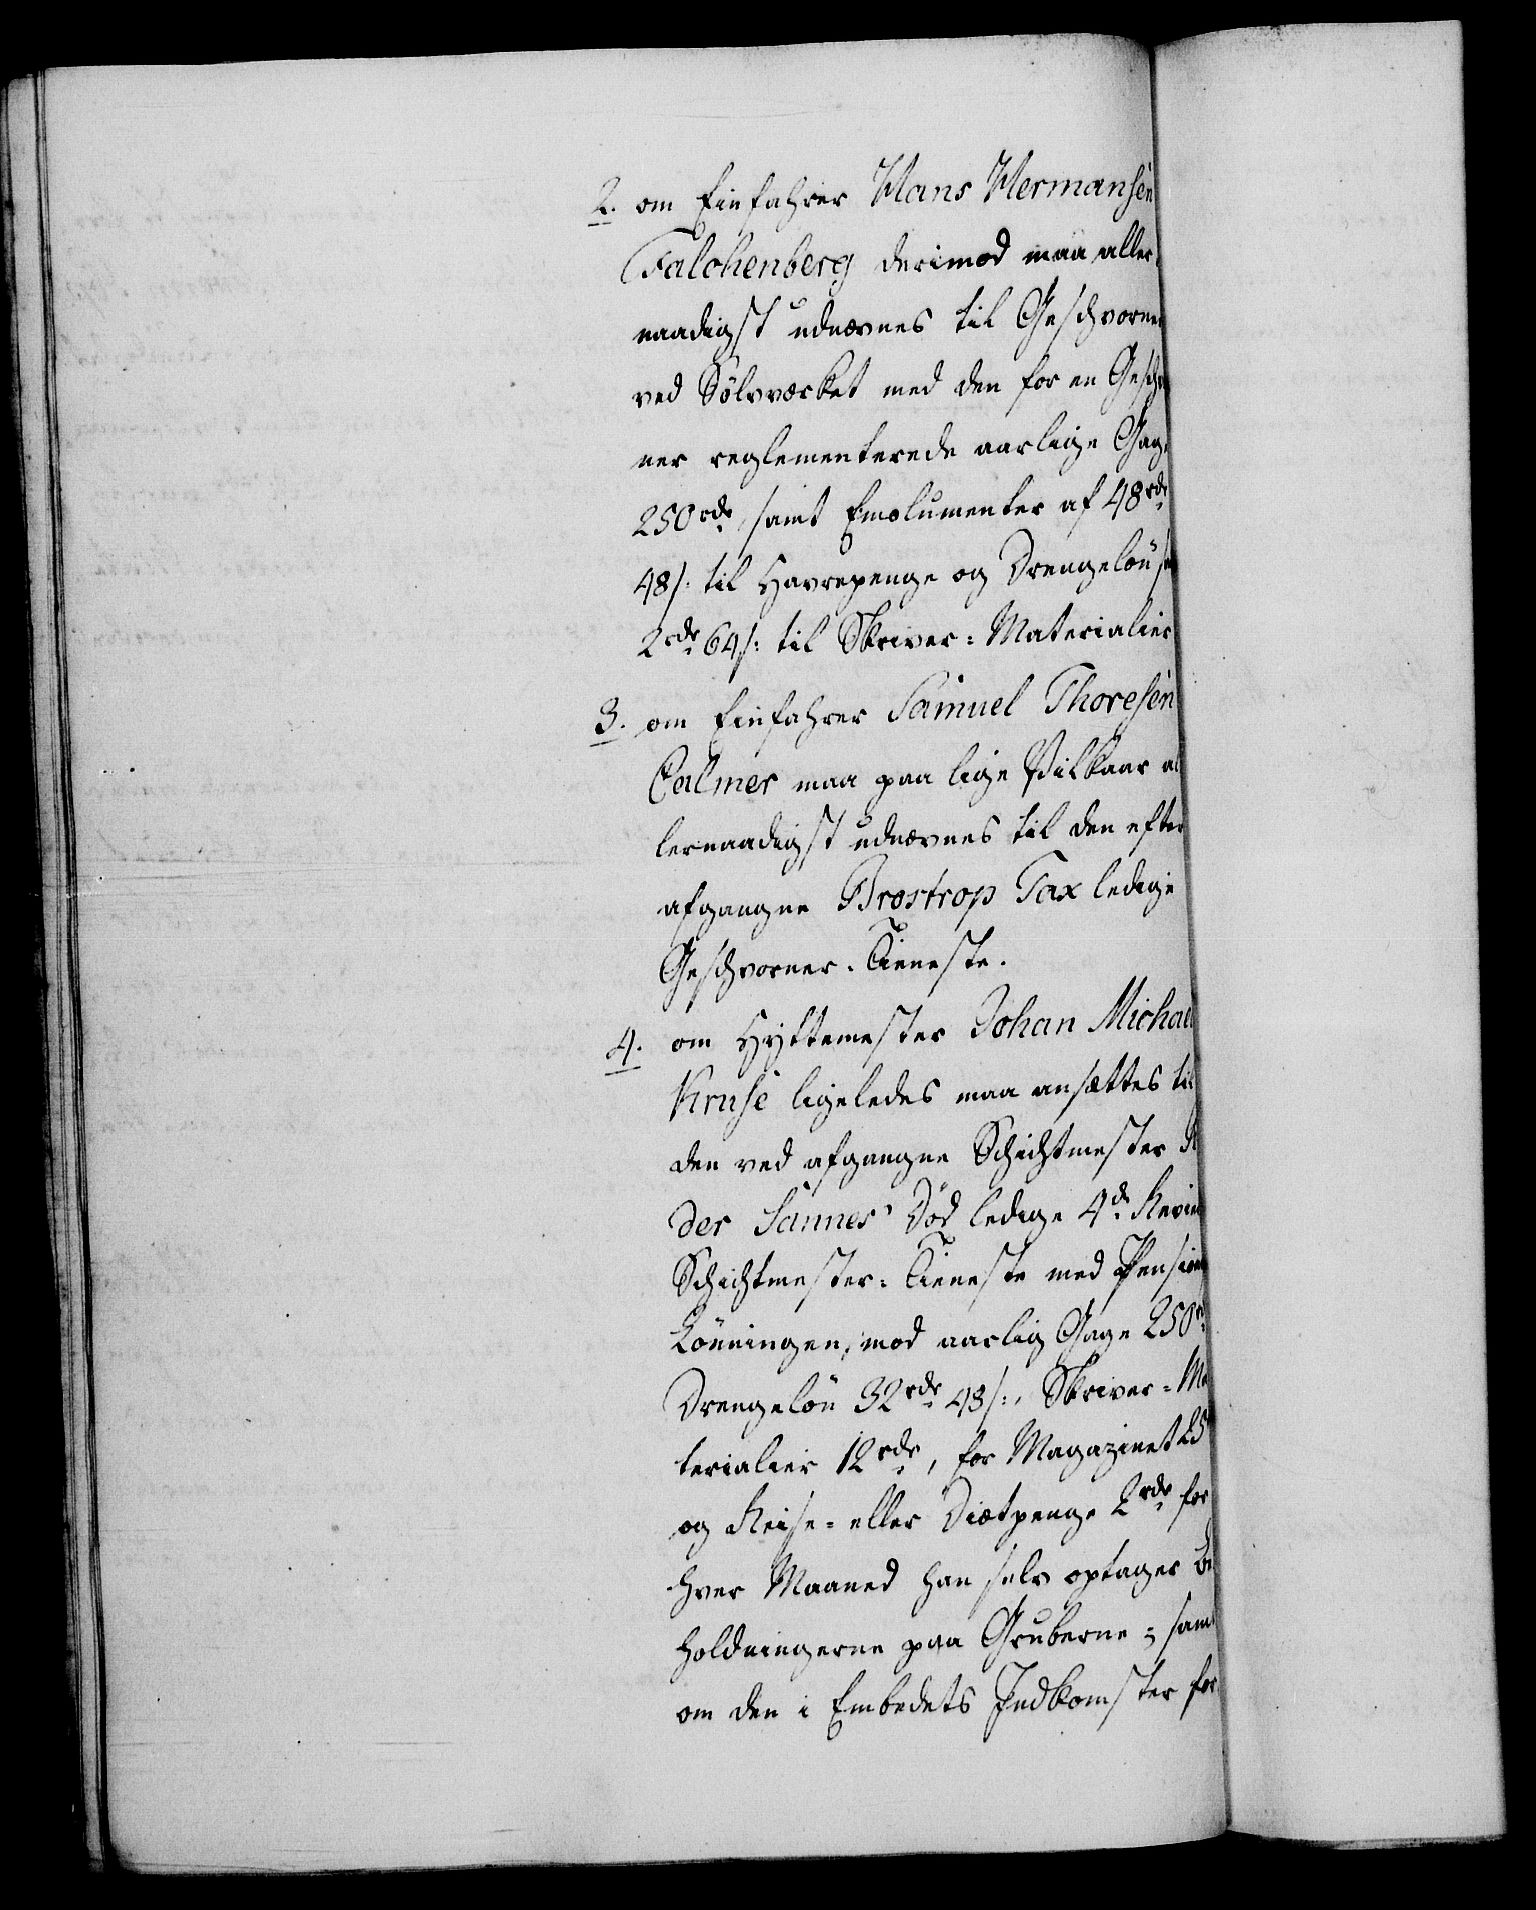 2. om Einfahrer Hans Hermansen
Falchenberg derimod maa aller-
naadigst udnævnes til Geschvorner
ved Sölvværket med den for en Geschv
ner reglementerede aarlige Gage
250 rdr, samt Emolumenter af 48 rdr
48 s: til Havrepenge og Drengelön sa
2 rdr 64 s: til Skriver-Materialier
3. om Einfahrer Samuel Thoresen
Calmer maa paa lige Vilkaar al
lernaadigst udnævnes til den efter
afgangne Brostrop Tax ledige
Geschvorner-Tieneste.
4. om Hyttemester Johan Michael
Kruse ligeledes maa ansættes til
den ved afgangne Schichtmester
der Sannes' Död ledige 4de Revier
Schichtmester-Tieneste med Pensions
Lönningen, mod aarlig Gage 250 r
Drengelön 32 rdr 48 s:, Skriver-Ma
terialier 12 rdr, for Magazinet 25
og Reise- eller Diætpenge 2 rdr for
hver Maaned han selv optager Be
holdningerne paa Gruberne; sam
om den i Embedets Indkomster for